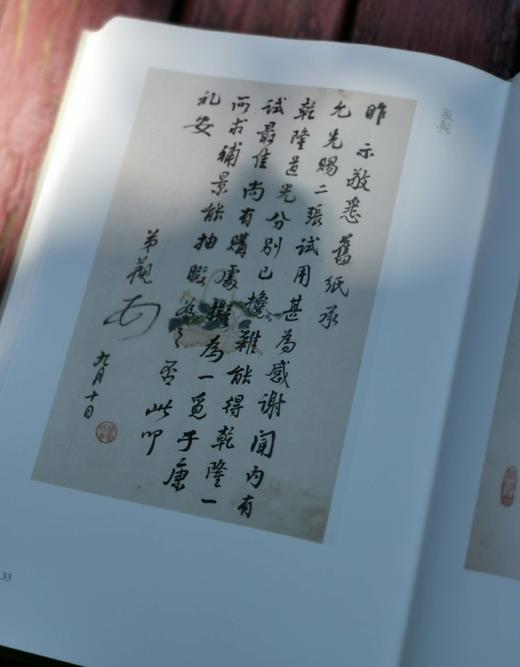 昨示敬悉舊紙承
允先賜二張試用甚為感謝聞內有
乾隆道光分別已攙雜能得乾隆一
試最佳尚有購處擬為一覓于康
何求補景能抽暇為之否此叩
礼安
弟觀
九月十日
33